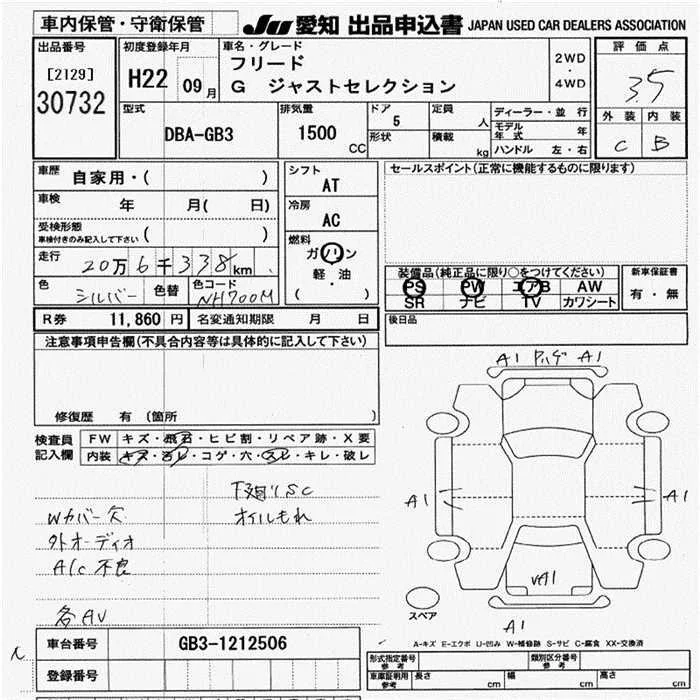 車内保管・守衛保管
JU 愛知 出品申込書 JAPAN USED CAR DEALERS ASSOCIATION
出品番号
[2129]
30732
初度登録年月
H22 09月
車名・グレード
フリード
G ジャストセレクション
2WD
・
4WD
評価点
3.5
外装 内装
C B
型式
DBA-GB3
排気量
1500
CC
ドア
5
形状
定員
人
積載
kg
ディーラー・並行
モデル年式 年
ハンドル 左・右
車歴 自家用・( )
車検 年 月( 日)
受検形態
車検付きのみ記入して下さい ( )
走行 20万6千338km
色 シルバー 色替 色コード NH700M
シフト
AT
冷房
AC
燃料
ガソリン
軽・油
( )
セールスポイント(正常に機能するものに限ります)
装備品(純正品に限り○をつけてください)
PS PW エアB AW
SR ナビ TV カワシート
新車保証書
有・無
後日品
R券 11,860円 名変通知期限 月 日
注意事項申告欄(不具合内容等は具体的に記入して下さい)
修復歴 有 (箇所 )
検査員
記入欄
FW キズ・飛石・ヒビ割・リペア跡・X要
内装 キズ・汚レ・コゲ・穴・スレ・キレ・破レ
下廻りSC
Wカバー欠 オイルもれ
外オーディオ
A/c 不良
各AV
A1 A1
A1 A1
A1
スペア
A1
車台番号 GB3-1212506
登録番号
A-キズ E-エクボ U-凹み W-補修跡 S-サビ C-腐食 XX-交換済
形式指定番号
参考
類別区分番号
参考
車庫証明用
参考
長さ cm 幅 cm 高さ cm